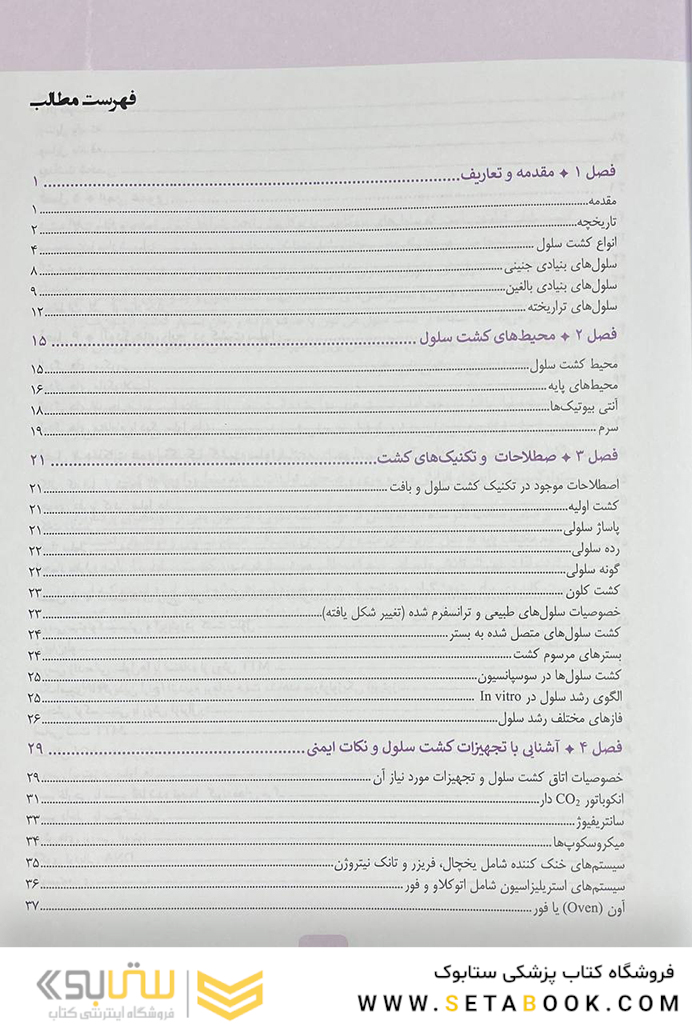 فهرست مطالب
فصل ۱ ✦ مقدمه و تعاریف ۱
مقدمه ۱
تاریخچه ۲
انواع کشت سلول ۴
سلول‌های بنیادی جنینی ۸
سلول‌های بنیادی بالغین ۹
سلول‌های تراریخته ۱۲
فصل ۲ ✦ محیط‌های کشت سلول ۱۵
محیط کشت سلول ۱۵
محیط‌های پایه ۱۶
آنتی بیوتیک‌ها ۱۸
سرم ۱۹
فصل ۳ ✦ صطلاحات و تکنیک‌های کشت ۲۱
اصطلاحات موجود در تکنیک کشت سلول و بافت ۲۱
کشت اولیه ۲۱
پاساژ سلولی ۲۱
رده سلولی ۲۲
گونه سلولی ۲۲
کشت کلون ۲۳
خصوصیات سلول‌های طبیعی و ترانسفرم شده (تغییر شکل یافته) ۲۳
کشت سلول‌های متصل شده به بستر ۲۴
بسترهای مرسوم کشت ۲۴
کشت سلول‌ها در سوسپانسیون ۲۵
الگوی رشد سلول در In vitro ۲۵
فازهای مختلف رشد سلول ۲۶
فصل ۴ ✦ آشنایی با تجهیزات کشت سلول و نکات ایمنی ۲۹
خصوصیات اتاق کشت سلول و تجهیزات مورد نیاز آن ۲۹
انکوباتور CO₂ دار ۳۱
سانتریفیوژ ۳۳
میکروسکوپ‌ها ۳۴
سیستم‌های خنک کننده شامل یخچال، فریزر و تانک نیتروژن ۳۵
سیستم‌های استریلیزاسیون شامل اتوکلاو و فور ۳۶
آون (Oven) یا فور ۳۷
فروشگاه کتاب پزشکی ستابوک
WWW.SETABOOK.COM
ستابوک
فروشگاه اینترنتی کتاب